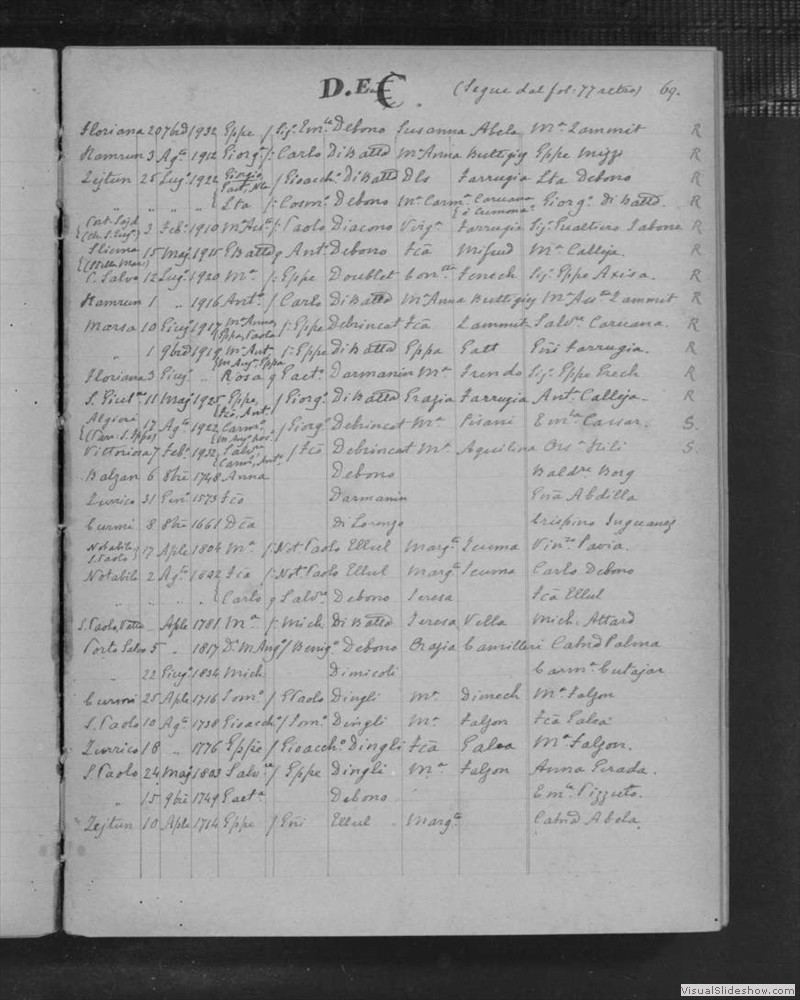 D. E. C. (Segue dal fol: 77 retro) 69.
Floriana 20 7bre 1932 Eppe / Sig. Emle Debono Susanna Abela Ma Zammit R
Hamrun 3 Agto 1912 Giorgo /: Carlo DiBattta Ma Anna Buttigieg Eppe Mizzi R
Zejtun 25 Lugo 1922 Giorgio, / Gioacch. DiBattta Dls Farrugia Lta Debono R
" " " Lta /: Cosmo Debono Ma Carma Caruana Giorgo DiBattta. R
3 Feb. 1910 /: Paolo Diacono Virga Farrugia Sig. Gualtiero Sabone R
Sliema 15 Mago 1915 GBattta q Anto Debono Fca Mifsud Ma Calleja. R
(Stella Maris)
P. Salvo 12 Lugo 1920 Ma. /: Eppe Doublet Fenech Sig. Eppe Axisa. R
Hamrun 1 " 1916 Anto. / Carlo DiBattta Ma Anna Buttigieg Zammit R
Marsa 10 Giugo 1917 Ma Anna, /: Eppe Debrincat Fca Zammit Salvre Caruana. R
" 1 9bre 1919 Ma Ant. /: Eppe DiBattta Eppa Gatt Farrugia. R
Floriana 3 Giugo " Rosa q Gaeto. Darmanin Ma Trendo Sig. Eppe Frech R
11 Mago 1925 Eppe, / Giorgo. DiBattta Grazia Farrugia Anto. Calleja. R
Algieri 17 Agto 1922 Carmo, / Giorgo Debrincat Ma Pisani Emla Cassar. S.
Vittoriosa 7 Febo. 1932 Salvre / Fco Debrincat Ma. Aquilina S.
Balzan 6 8bre 1748 Anna Debono Baldre Borg
Zurrico 31 Genro 1573 Fco Darmanin Abdilla
Curmi 8 8bre 1661 Dca di Lorenzo Crispino Inguanez
Notabile 17 Aple 1804 Ma. /: Not. Paolo Ellul Marga Scuma Vinzo Pavia.
S. Paolo
Notabile 2 Agto 1842 Fca /: Not. Paolo Ellul Marga Scuma Carlo Debono
" " " Carlo q Salvre Debono Teresa Fca Ellul
S. Paolo, Aple 1781 Ma. /: Mich. DiBattta Teresa Vella Mich. Attard
Porto Salvo 5 " 1817 / Benigo Debono Grazia Camilleri Palma
" 22 Giugo 1834 Mich. Dimicoli Carma Cutajar
Curmi 25 Aple 1716 Tomo / GPaolo Dingli Ma. Dimech Ma Falzon
S. Paolo 10 Agto 1738 Gioaccho / Tomo. Dingli Ma. Falzon Fca Galea
Zurrico 18 " 1776 Eppe / Gioaccho. Dingli Fca Galea Ma Falzon.
S. Paolo 24 Mago 1803 Salvre / Eppe Dingli Ma. Falzon Anna
" 15 9bre 1749 Gaeta Debono Ema Pizzuto.
Zejtun 10 Aple 1714 Eppe / Ellul Marga Abela.
VisualSlideshow.com